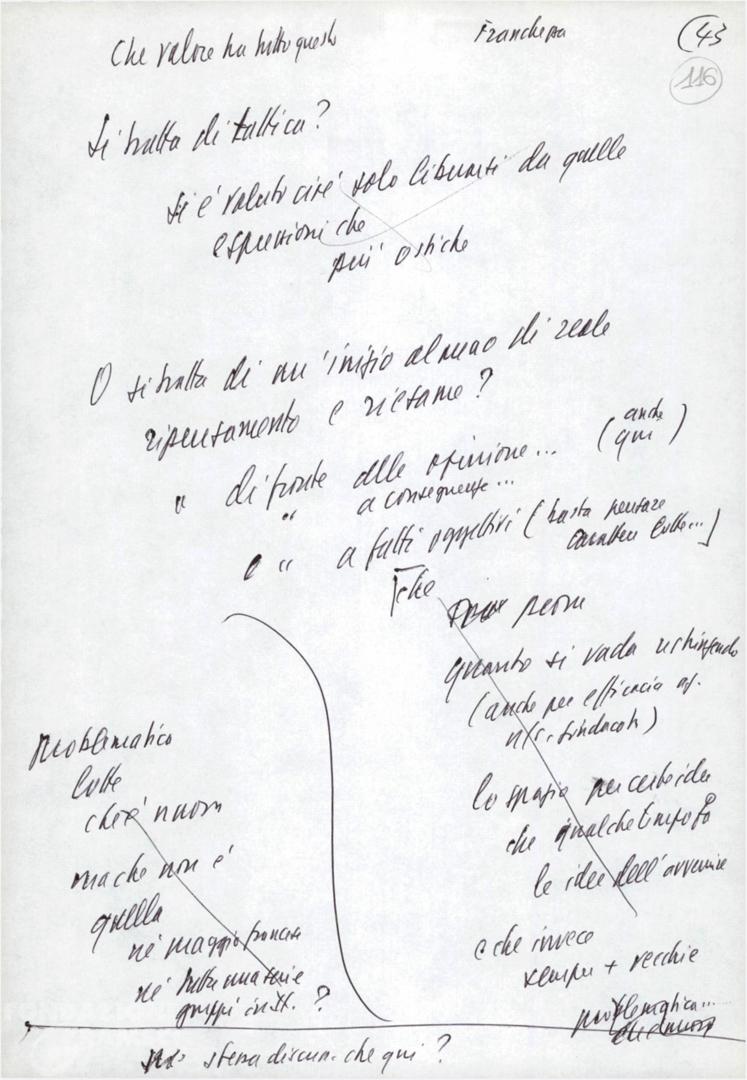 Che valore ha tutto questo
Franchezza
(43
116
Si tratta di tattica?
si è voluto cioè solo liberarsi da quelle
espressioni che
più ostiche
O si tratta di un'inizio almeno di reale
ripensamento e riesame?
" di fronte alle opinione... (anche qui)
" a conseguenze...
o " a fatti oggettivi (basta pensare
carattere lotte...)
che
quanto si vada restringendo
(anche per efficacia
sindacati)
lo spazio per certe idee
che qualche tempo fa
le idee dell'avvenire
e che invece
sempre + vecchie
problematica...
Problematico
lotte
che è nuova
ma che non è
quella
né maggio francese
né tutta una serie
gruppi
?
stessa che qui?